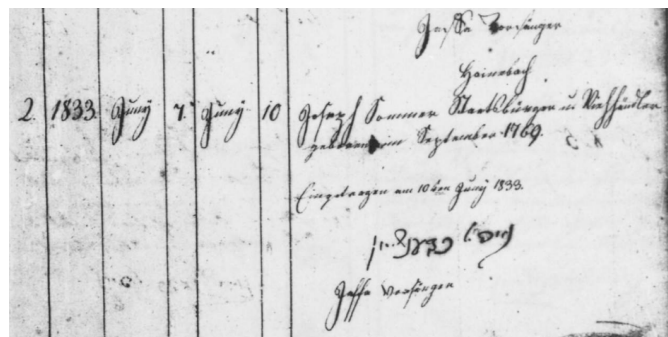 Jaffa Vorsänger
Heinebach
2. 1833. Juny 7. Juny 10 Joseph Sommer Staatsbürger u Viehhändler
geboren im September 1769.
Eingetragen am 10ten Juny 1833.
Jaffa Vorsänger